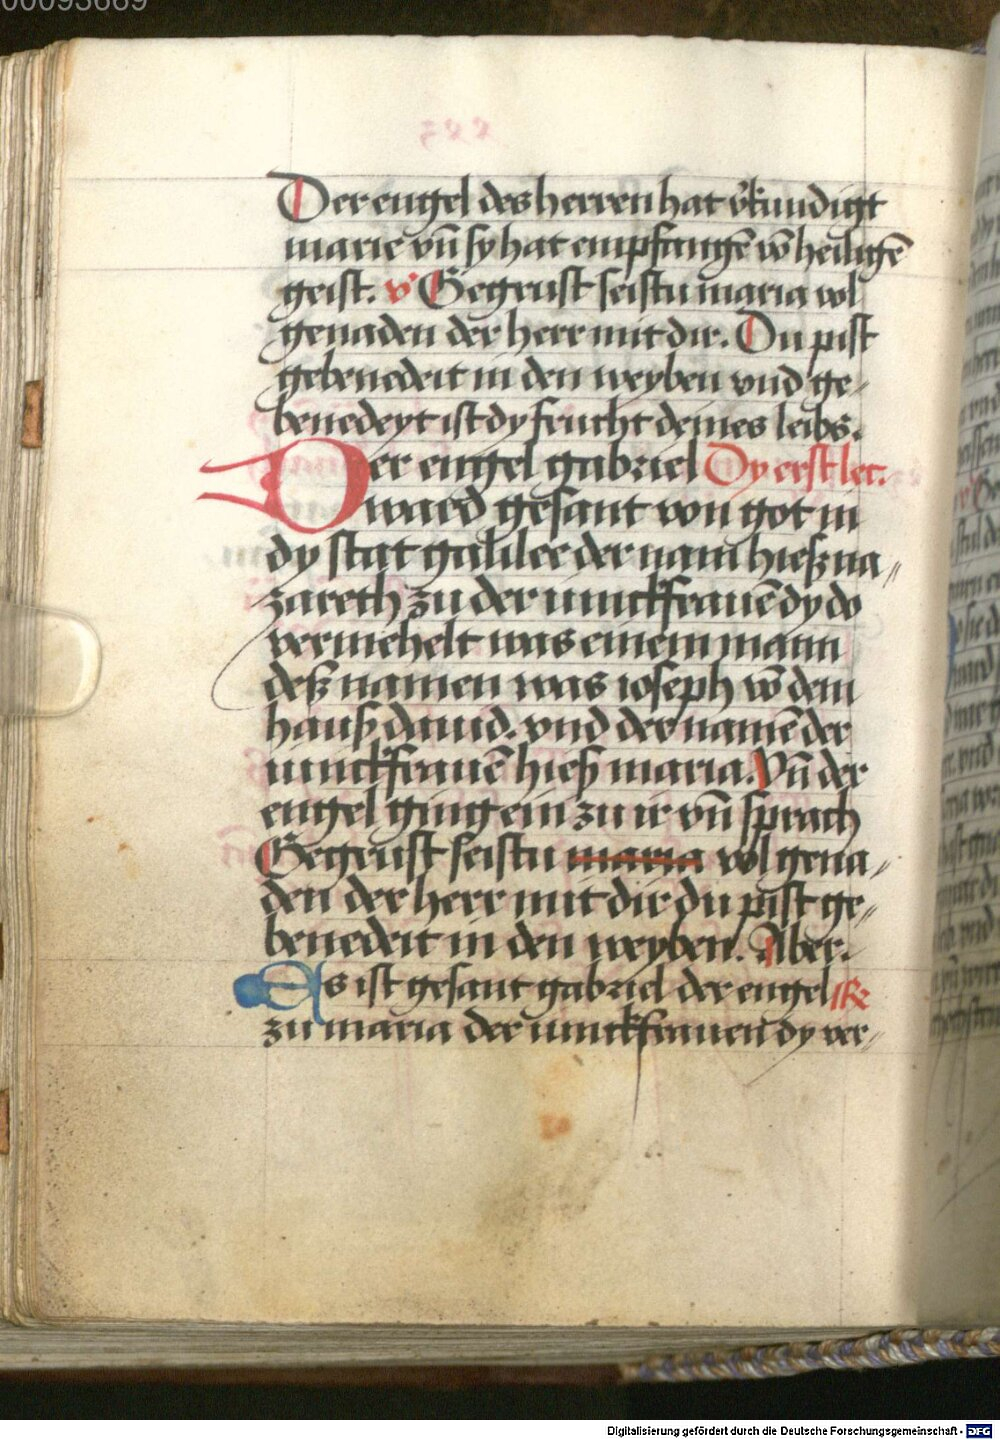 Der engel des herren hat v̄kundigt
marie vn̄ sy hat empfangē vō heiligē
geist. v̓ Gegrust seistu maria vol
genaden der herr mit dir. Du pist
gebenedeit in den weyben vnd ge-
benedeyt ist dy frucht deines leibs.
Der engel gabriel Dy erst ler.
ward gesant von got in
dy stat galilee der nam hieß na-
zareth zu der iunckfrauē dy do
vermehelt was einem mann
deß namen was ioseph vō dem
hauß dauid. vnd der namē der
iunckfrauē hieß maria. Vn̄ der
engel ging ein zu ir vn̄ sprach
Gegrust seistu maria vol gena-
den der herr mit dir du pist ge-
benedeit in den weyben. Aber.
Es ist gesant gabriel der engel
zu maria der iunckfrauen dy ver-
Digitalisierung gefördert durch die Deutsche Forschungsgemeinschaft - DFG